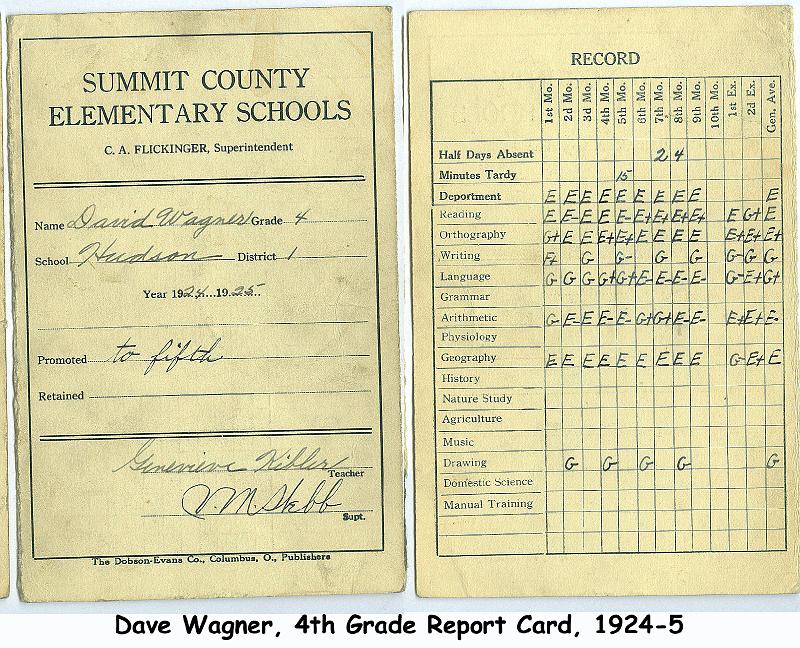 SUMMIT COUNTY
ELEMENTARY SCHOOLS
C. A. FLICKINGER, Superintendent
Name David Wagner Grade 4
School Hudson District 1
Year 1924 1925
Promoted to fifth
Retained
Genevieve Kibler
Teacher
Supt.
The Dobson-Evans Co., Columbus, O., Publishers
RECORD
1st Mo. 2d Mo. 3d Mo. 4th Mo. 5th Mo. 6th Mo. 7th Mo. 8th Mo. 9th Mo. 10th Mo. 1st Ex. 2d Ex. Gen. Ave.
Half Days Absent 2 4
Minutes Tardy 15
Deportment E E E E E E E E E E
Reading E E- E E E- E+ E+ E+ E+ E G+ E
Orthography G+ E E E+ E+ E E E E E+ E+ E+
Writing G G- G G G- G G
Language G G G G+ G+ E- E- E- E- G- E+ G+
Grammar
Arithmetic G E- E E- E- G+ G+ E- E- E+ E+ E-
Physiology
Geography E E E E E E E E E G- E+ E
History
Nature Study
Agriculture
Music
Drawing G G G G G
Domestic Science
Manual Training
Dave Wagner, 4th Grade Report Card, 1924-5